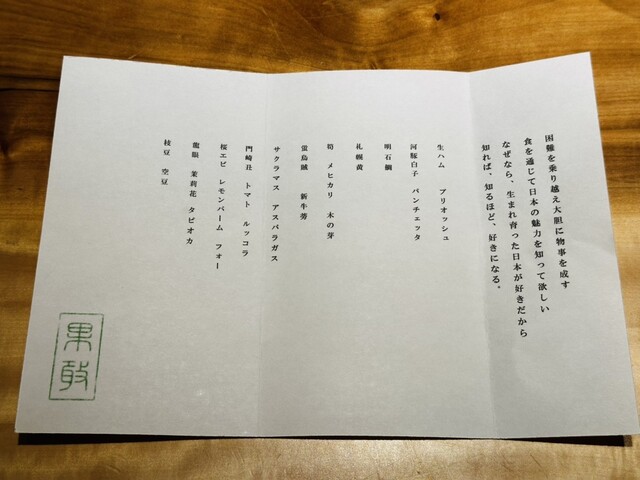 困難を乗り越え大胆に物事を成す
食を通じて日本の魅力を知って欲しい
なぜなら、生まれ育った日本が好きだから
知れば、知るほど、好きになる。
生ハム ブリオッシュ
河豚白子 パンチェッタ
明石鯛
札幌黄
筍 メヒカリ 木の芽
蛍烏賊 新牛蒡
サクラマス アスパラガス
門崎丑 トマト ルッコラ
桜エビ レモンバーム フォー
龍眼 茉莉花 タピオカ
枝豆 空豆
果敢